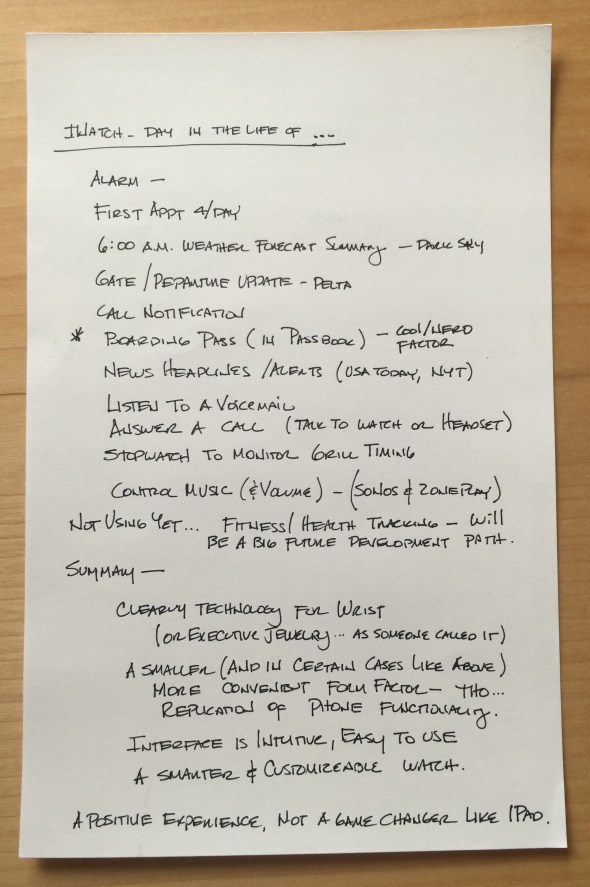 IWATCH - DAY IN THE LIFE OF ....
ALARM -
FIRST APPT 4/DAY
6:00 A.M. WEATHER FORECAST SUMMARY - DARK SKY
GATE / DEPARTURE UPDATE - DELTA
CALL NOTIFICATION
* BOARDING PASS (IN PASSBOOK) - COOL/NERD
FACTOR
NEWS HEADLINES / ALERTS (USA TODAY, NYT)
LISTEN TO A VOICEMAIL
ANSWER A CALL (TALK TO WATCH OR HEADSET)
STOPWATCH TO MONITOR GRILL TIMING
CONTROL MUSIC (& VOLUME) - (SONOS & ZONEPLAY)
NOT USING YET... FITNESS / HEALTH TRACKING - WILL
BE A BIG FUTURE DEVELOPMENT PATH.
SUMMARY -
CLEARLY TECHNOLOGY FOR WRIST
(OR EXECUTIVE JEWELRY... AS SOMEONE CALLED IT)
A SMALLER (AND IN CERTAIN CASES LIKE ABOVE)
MORE CONVENIENT FORM FACTOR - THO...
REPLICATION OF PHONE FUNCTIONALITY.
INTERFACE IS INTUITIVE, EASY TO USE
A SMARTER & CUSTOMIZEABLE WATCH.
A POSITIVE EXPERIENCE, NOT A GAME CHANGER LIKE IPAD.